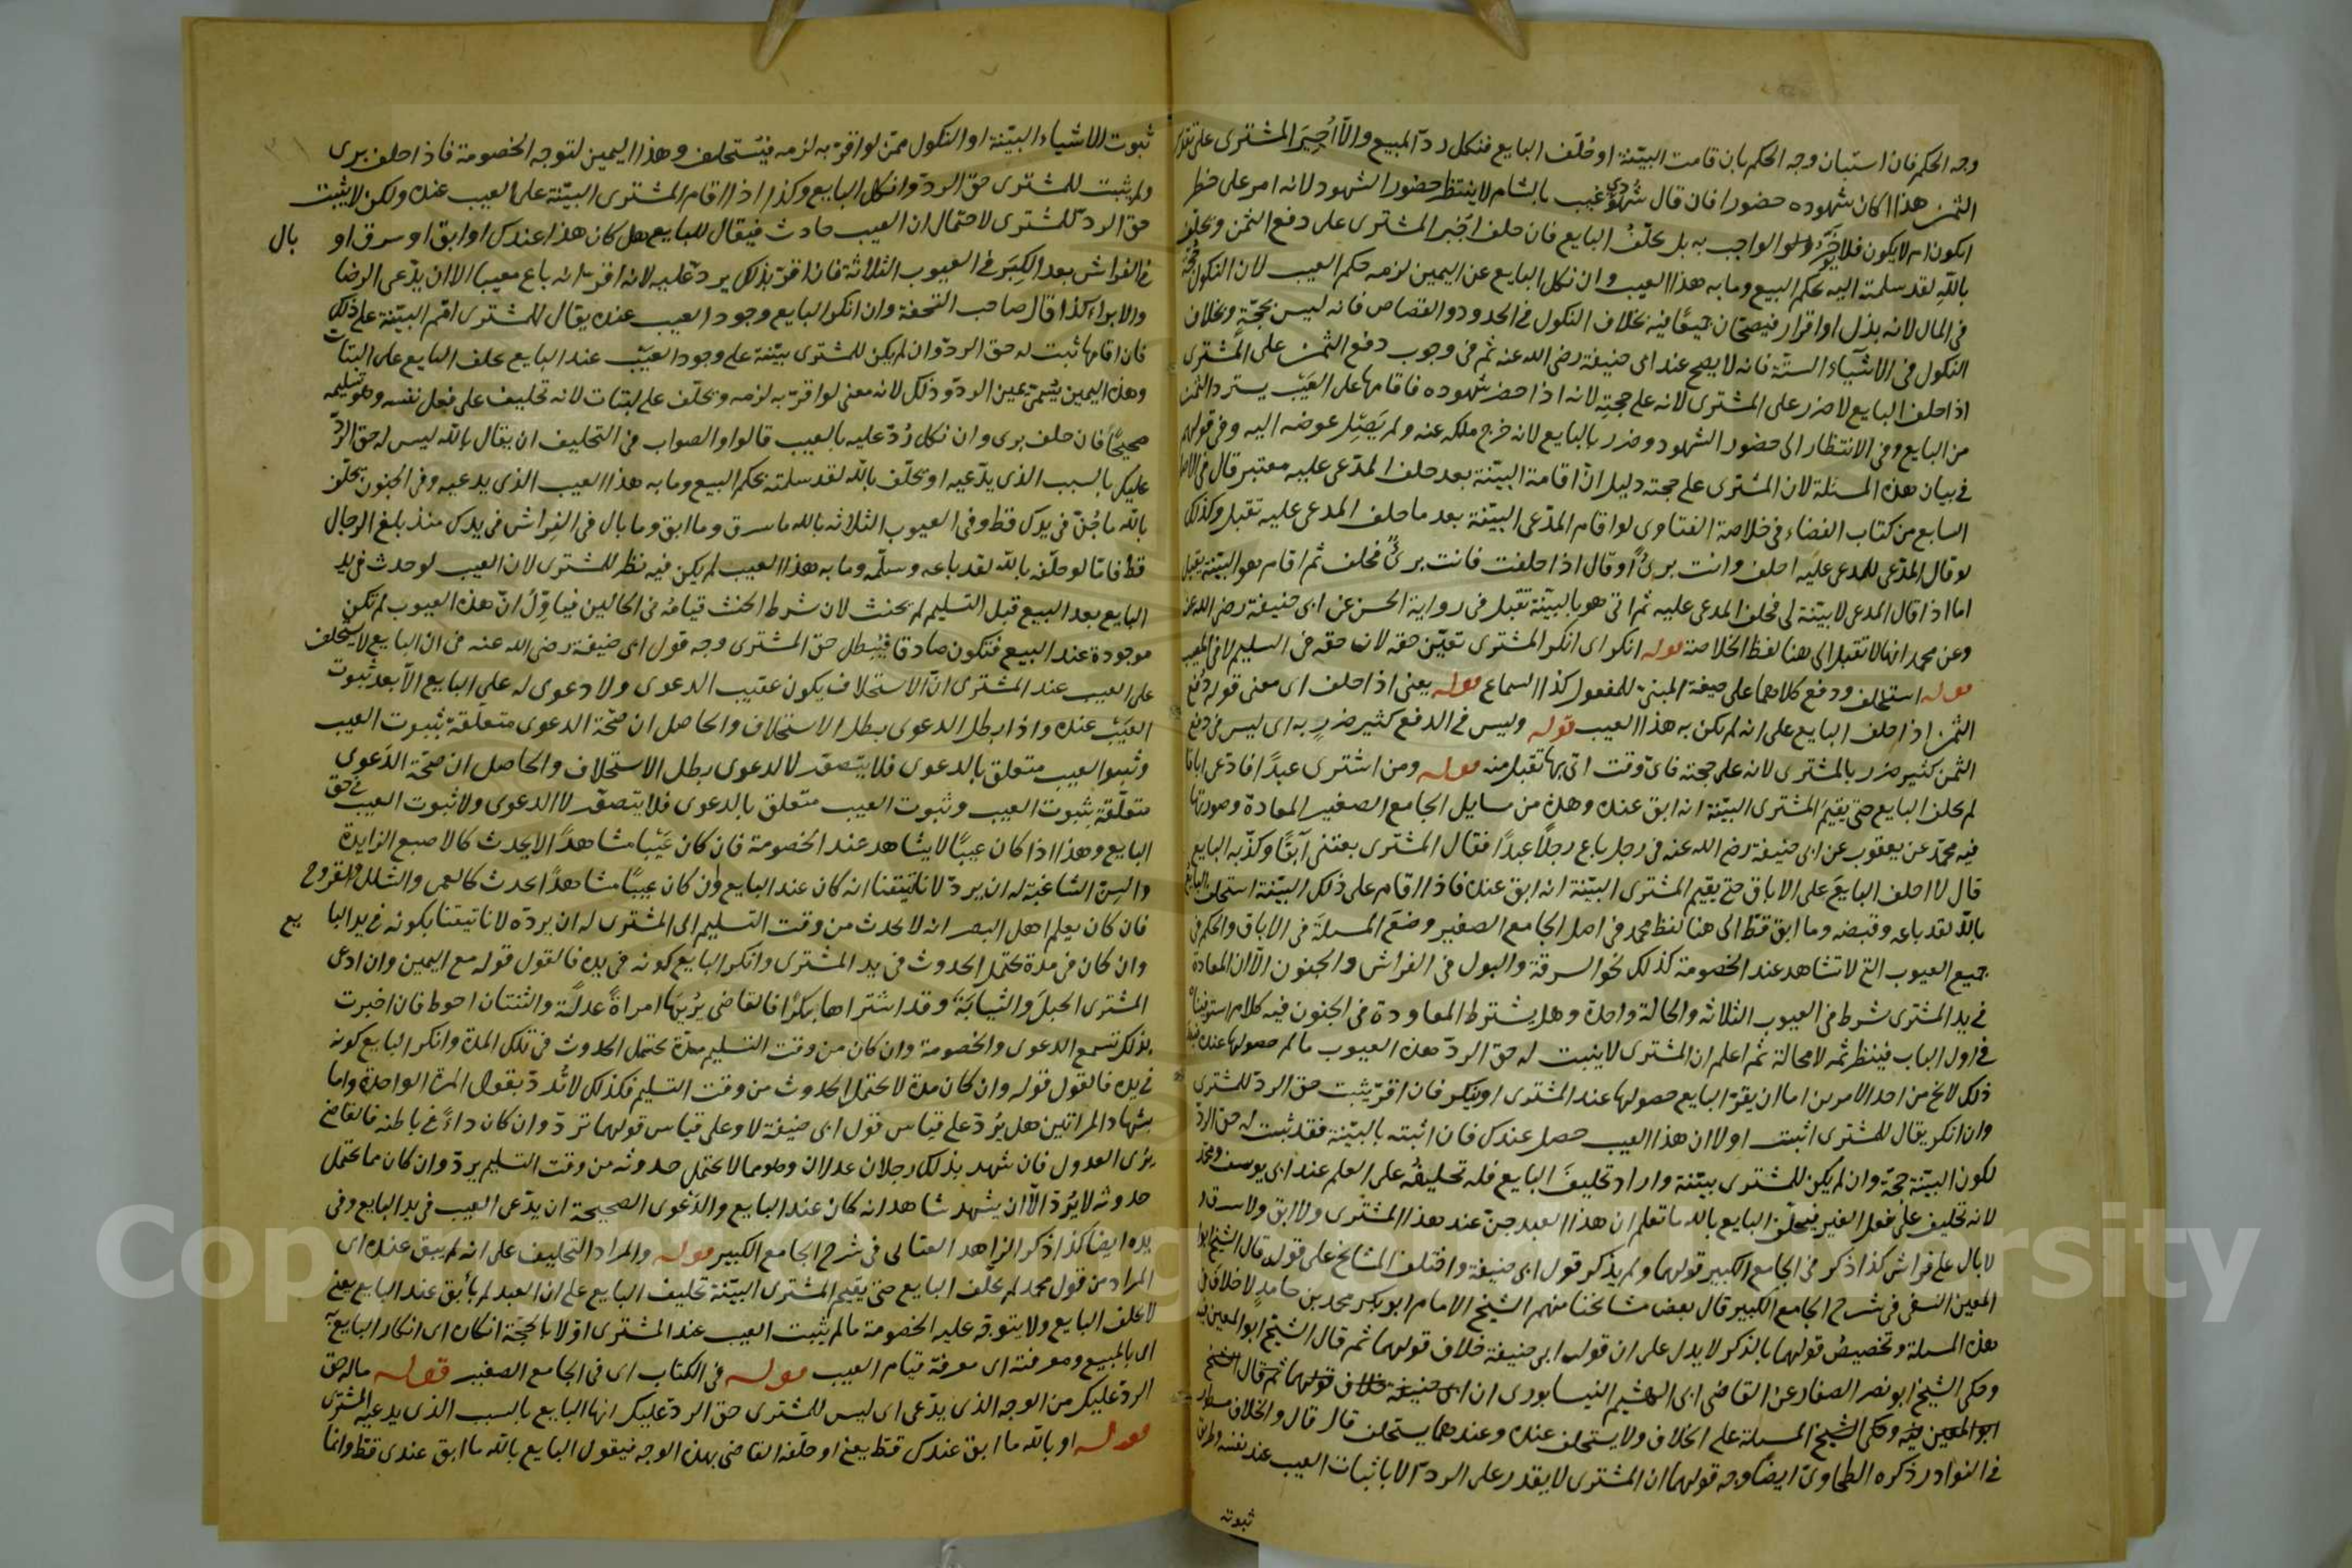 وجه الحكم فان استبان وجه الحكم بان قامت البينة او حُلّف البايع فنكل ردّ المبيع والّا اُجِبرَ المشترى على
الثمن هذا اكان شهوده حضورا فان قال شهودى غيب بالشام لا ينتظر حضور الشهود لانه امر على خطر
بالله لقد سلمته اليه بحكم البيع وما به هذا العيب وان نكل البايع عن اليمين لزمه حكم العيب لان النكول حجة
فى المال لانه بذل او اقرار فيصحّان جميعًا فيه بخلاف النكول فى الحدود والقصاص فانه ليس بحجّة وبخلاف
النكول فى الاشيآء الستّة فانه لا يصح عند ابى حنيفة رضى الله عنه ثم فى وجوب دفع الثمن على المشترى
اذا حلف البايع لا ضرر على المشترى لانه على حجته لانه اذا حضر شهوده فاقامها على العَيب يسترد الثمن
من البايع وفى الانتظار الى حضور الشهود ضرر بالبايع لانه خرج ملكه عنه ولم يَصِل عوضه اليه وفى قولهم
فى بيان هذه المسئلة لان المشترى على حجته دليل انّ اقامة البيّنة بعد حلف المدّعى عليه معتبر قال فى
السابع من كتاب القضاء فى خلاصة الفتاوى لو اقام المدّعى البيّنة بعد ما حلف المدعى عليه تقبل وكذلك
لو قال المدّعى للمدعى عليَه احلف وانت برىٌ او قال اذا حلفت فانت برىٌ فحلف ثم اقام هو البيّنة يقبل
اما اذا قال المدعى لا بيّنة لى فحلف المدعى عليه ثم اتى هو بالبيّنة تقبل فى رواية الحسن عن ابى حنيفة رضى الله عنه
وعن محمد انها لا تقبل الى هنا لفظ الخلاصة قوله انكر اى انكر المشترى تعيّن حقه لان حقه فى السليم لا فى المعيب
قوله استحلف ودفع كلاهما على صيغة المبنى للمفعول كذا السماع قوله يعنى اذا حلف اى معنى قوله دفع
الثمن اذا حلف البايع على انه لم يكن به هذا العيب قوله وليس فى الدفع كثير ضررٍ به اى ليس فى دفع
الثمن كثير ضرر بالمشترى لانه على حجته فاىّ وقت اتى بها تقبل منه قوله ومن اشترى عبدًا فادّعى اباقا
لم يحلف البايع حتى يقيمَ المشترى البيّنة انه ابق عنده وهذه من مسايل الجامع الصغير المعادة وصورتها
فيه محمّد عن يعقوب عن ابى حنيفة رضى الله عنه فى رجل باع رجلًا عبدًا فقال المشترى بعتنى آبقًا وكذّبه البايع
قال لا احلف البايعَ على الاباق حتى يقيم المشترى البيّنة انه ابق عنده فاذا اقام على ذلك البيّنة استحلف البايع
بالله لقد باعه وقبضه وما ابق قطّ الى هنا لفظ محمد فى اصل الجامع الصغير وضعَ المسئلةَ فى الاباق والحكم فى
جميع العيوب التى لا تشاهد عند الخصومة كذلك نحو السرقة والبول فى الفراش والجنون الّا ان المعادة
فى يد المشترى شرط فى العيوب الثلاثه والحالة واحدة وهل يشترط المعاودة فى الجنون فيه كلام
فى اول الباب فينظر ثمه لا محالة ثم اعلم ان المشترى لا يثبت له حق الردّ بهذه العيوب ما لم حصولها عنده
ذلك لا يخ من احد الامرين اما ان يقرّ البايع حصولها عند المشترى او ينكر فان اقرّ يثبت حق الردّ للمشترى
وان انكر يقال للمشترى اثبت اولا ان هذا العيب حصل عندك فان اثبته بالبيّنة فقد ثبت له حق الردّ
لكون البيّنة حجّة وان لم يكن للمشترى بيّنة واراد تحليفَ البايع فله تحليفُه على العلم عند ابى يوسف ومحمد
لانه تحليف على فعل الغير فيحلّف البايع بالله ما تعلم ان هذا العبد جنّ عند هذا المشترى ولا ابق ولا سرق
لا بال على فراش كذا ذكر فى الجامع الكبير قولهما ولم يذكر قول ابى حنيفة واختلف المشايخ على قوله قال الشيخ ابو
المعين النسفى فى شرح الجامع الكبير قال بعض مشايخنا منهم الشيخ الامام ابو بكر محمد بن حامد لا خلاف فى
هذه المسئلة وتخصيصُ قولهما بالذكر لا يدل على ان قول ابى حنيفة خلاف قولهما ثم قال الشيخ ابو المعين
وحكى الشيخ ابو نصر الصفار عن القاضى ابى الهيثم النيسابورى ان ابى حنيفة خلاف قولهما ثم قال الشيخ
ابو المعين وحكى الشيخ المسئلة على الخلاف ولا يستحلف عنده وعندهما يستحلف قال قال والخلاف
فى النوادر ذكره الطحاوىّ ايضا وجه قولهما ان المشترى لا يقدر على الردّ الا باثبات العيب عند نفسه
ثبوته
ثبوت الاشياء البيّنة او النكول ممّن لو اقرّ به لزمه فيستحلف وهذا اليمين لتوجه الخصومة فاذا حلف برى
ولم يثبت للمشترى حق الردّ وان نكل البايع وكذا اذا اقام المشترى البيّنة على العيب عنده ولكن لا يثبت
حق الردّ للمشترى لاحتمال ان العيب حادث فيقال للبايع هل كان هذا عندك او ابق او سرق او بال
فى الفراش بعد الكِبَر فى العيوب الثلاثة فان اقرّ بذلك يردّ عليه لانه اقرّ انه باع معيبا الا ان يدّعى الرضا
والابراء كذا قال صاحب التحفة وان انكر البايع وجود العيب عنده يقال للمشترى اقم البيّنة على ذلك
فان اقامها ثبت له حق الردّ وان لم يكن للمشترى بيّنة على وجود العيب عند البايع يحلف البايع على البتات
وهذه اليمين يسمّى يمين الردّ وذلك لانه معنى لو اقرّ به لزمه ويحلّف على البتات لانه تحليف على فعل نفسه وهو تسليمه
صحيحًا فان حلف برى وان نكل رُدّ عليه بالعيب قالوا والصواب فى التحليف ان يقال بالله ليس له حق الردّ
عليك بالسبب الذى يدّعيه او يحلّف بالله لقد سلمته بحكم البيع وما به هذا العيب الذى يدعيه وفى الجنون يحلّف
بالله ما جُنّ فى يدك قط وفى العيوب الثلاثه بالله ما سرق وما ابق وما بال فى الفِراش فى يدك منذ بلغ الرجال
قط فامّا لو حلّفه بالله لقد باعه وسلّمه وما به هذا العيب لم يكن فيه نظر للمشترى لان العيب لو حدث فى يد
البايع بعد البيع قبل التسليم لم يحنث لان شرط الحنث قيامُه فى الحالين فياوّلُ انّ هذه العيوب لم تكن
موجودة عند البيع فتكون صادقا فيبطل حق المشترى وجه قول ابى حنيفة رضى الله عنه فى ان البايع لا يستحلف
على العيب عند المشترى انّ الاستحلاف يكون عقيب الدعوى ولا دعوى له على البايع الّا بعد ثبوت
العيَب عنده واذا بطل الدعوى بطل الاستحلاف والحاصل ان صحّة الدعوى متعلّقة بثبوت العيب
وثبوت العيب متعلق بالدعوى فلا يتصوّر لا لدعوى بطل الاستحلاف والحاصل ان صحّة الدّعوى
متعلّقة بثبوت العيب وثبوت العيب متعلق بالدعوى فلا يتصوّر لا الدعوى ولا ثبوت العيب فى حق
البايع وهذا اذا كان عيبًا لا يشاهد عند الخصومة فان كان عَيْبا مشاهدًا لا يحدث كالاصبع الزايدة
والسِنّ الشاغية له ان يردّ لانا تيقنا انه كان عند البايع وان كان عيبًا مشاهدًا يحدث كالعمى والشلل والقروح
فان كان يعلم اهل البصر انه لا يحدث من وقت التسليم الى المشترى له ان يردّه لانا تيقنا بكونه فى يد البايع
وان كان فى مدة يحتمل الحدوث فى يد المشترى وانكر البايع كونه فى يده فالقول قوله مع اليمين وان ادعى
المشترى الحبلَ والثيابَة وقد اشتراها بكرًا فالقاضى يُرِيها امراةً عدلةً والثنتان احوط فان اخبرت
بذلك تسمع الدعوى والخصومة وان كان من وقت التسليم مدّة يحتمل الحدوث فى تلك المدة وانكر البايع كونه
فى يده فالقول قوله وان كان مدة لا يحتمل الحدوث من وقت التسليم فكذلك لا تُردّ بقول المرة الواحدة واما
بشهادة المراتين هل يُردّ على قياس قول ابى حنيفة لا وعلى قياس قولهما تردّ وان كان داءً فى باطنه فالقاضى
يرى العدول فان شهد بذلك رجلان عدلان وهو مما لا يحتمل حدوثه من وقت التسليم يردّ وان كان مما يحتمل
حدوثه لا يُردّ الّا ان يشهد شاهد انه كان عند البايع والدّعوى الصحيحة ان يدّعى العيب فى يد البايع وفى
يده ايضا كذا ذكر الزاهد العتابى فى شرح الجامع الكبير قوله والمراد التحليف على انه لم يبق عنده اى
المراد من قول محمد لم يحلّف البايع حتى يقيم المشترى البيّنة تحليف البايع على ان العبد لم يأبق عند البايع يعنى
لا يحلف البايع ولا يتوجّه عليه الخصومة ما لم يثبت العيب عند المشترى اوّلا بالحجّة انكاره اى انكار البايع
اى بالمبيع ومعرفته اى معرفة قيام العيب قوله فى الكتاب اى فى الجامع الصغير قوله ماله حق
الردّ عليك من الوجه الذى يدّعى اى ليس للمشترى حق الردّ عليك ايها البايع بالسبب الذى يدعيه المشترى
قوله او بالله ما ابق عندك قطّ يعنى او حلّفه القاضى بهذه الوجه فيقول البايع بالله ما ابق عندى قطّ وانما